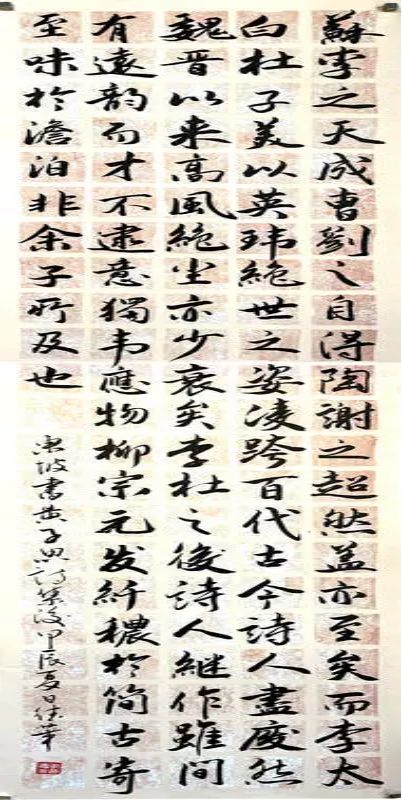 蘇李之天成曹劉之自得陶謝之超然盖亦至矣而李太
白杜子美以英玮絶世之姿凌跨百代古今詩人盡廢然
魏晋以来高風絶尘亦少衰矣李杜之後詩人継作雖间
有遠韵而才不逮意獨韦應物柳宗元发纤穠於简古寄
至味於澹泊非余子所及也
東坡書黄子思詩集後甲辰夏日